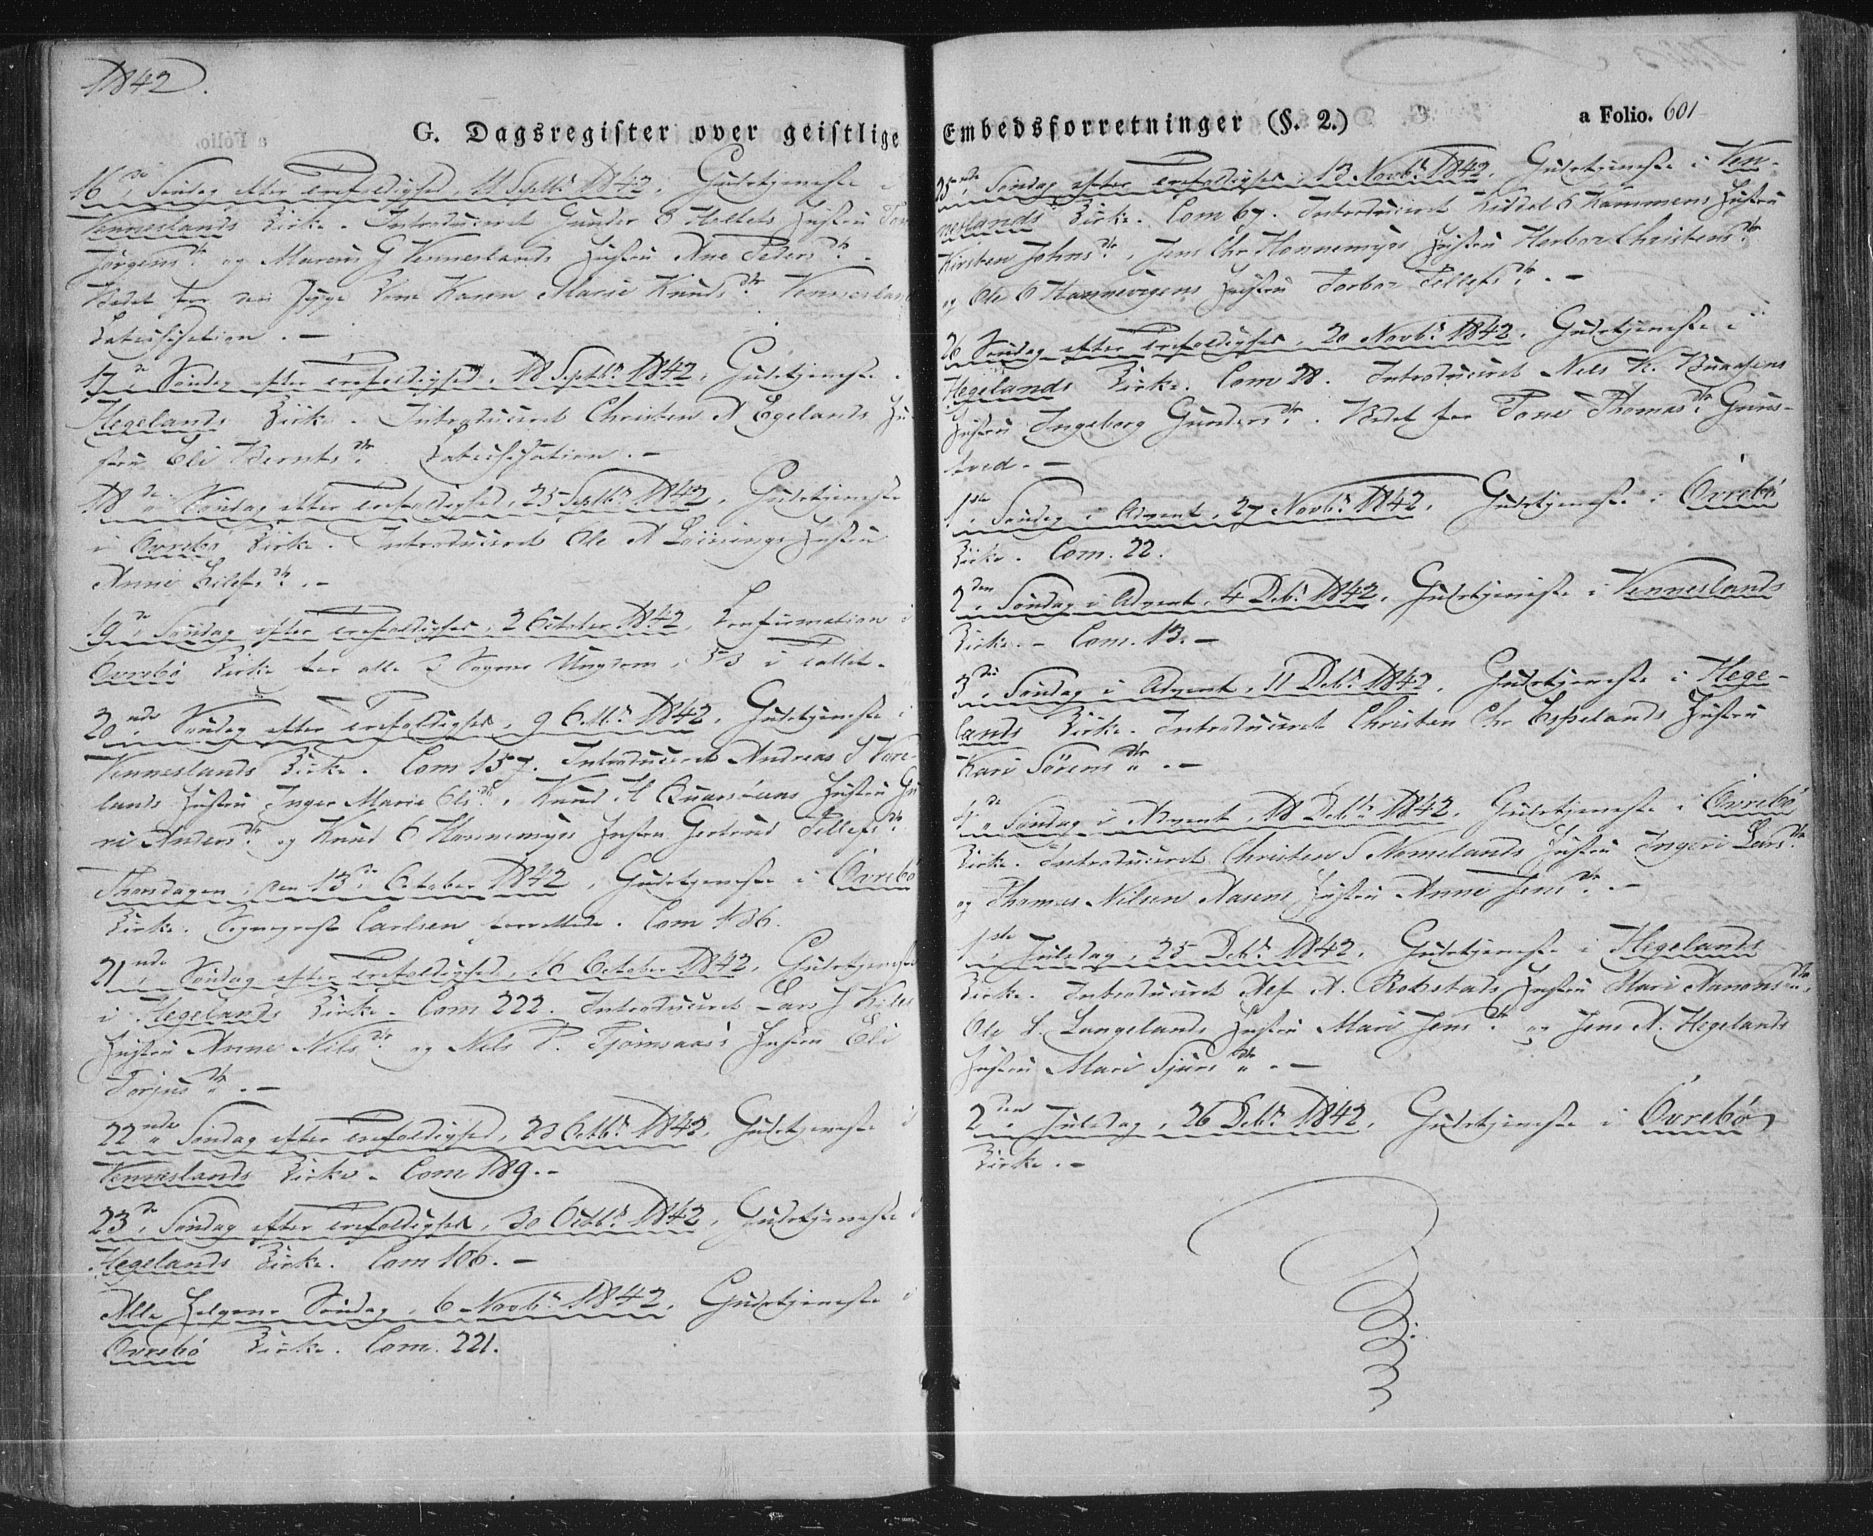 1842.
G. Dagsregister over geistlige
16de Søndag efter Trefoldighed, 11 Septbr 1842, Gudstjeneste i
Venneslands Kirke. Introduceret Gunder O Heltets Hustru
Jørgensdtr og Marcus G Venneslands Hustru Ane Pedersdtr.
Bedet for den syge Kone Karen Marie Knudsdtr Vennesland
Catechisation. –
17de Søndag efter Trefoldighed, 18 Septbr 1842, Gudstjeneste i
Hegelands Kirke. Introduceret Christen A Egelands Hu-
stru Eli Berntsdtr. Catechisation. –
18de Søndag efter Trefoldighed, 25 Septbr 1842, Gudstjeneste
i Øvrebø Kirke. Introduceret Ole A Løinings Hustru
Anne Eilefsdtr. –
19de Søndag efter Trefoldighed, 2 October 1842, Confirmation i
Øvrebø Kirke for alle 3 Sognes Ungdom, 53 i Tallet.
20nde Søndag efter Trefoldighed, 9 Octbr 1842, Gudstjeneste i
Venneslands Kirke. Com 157. Introduceret Andreas S Vore-
lands Hustru Inger Marie Olsdtr, Knud H Qvarsteens Hustru Gu
ri Andersdtr og Knud O Honnemyrs Hustru Gertrud Tellefsdtr
Thorsdagen den 13de October 1842, Gudstjeneste i Øvrebø
Kirke. Sognepræst Carlsen forrettede. Com 186.
21nde Søndag efter Trefoldighed, 16 October 1842, Gudstjeneste
i Hegelands Kirke. Com 222. Introduceret Lars J Kiles
Hustru Anne Nilsdtr og Nils P. Tjomsaas's Hustru Eli
Torjusdtr. –
22nde Søndag efter Trefoldighed, 23 Octbr 1842, Gudstjeneste i
Venneslands Kirke. Com 189. –
23de Søndag efter Trefoldighed, 30 Octbr 1842, Gudstjeneste i
Hegelands Kirke. Com 106. –
Alle Helgens Søndag, 6 Novbr 1842, Gudstjeneste i
Øvrebø Kirke. Com. 221.
Embedsforretninger (§. 2.) a Folio. 601
25nde Søndag efter Trefoldighed, 13 Novbr 1842, Gudstjeneste i Ven-
neslands Kirke. Com 67. Introduceret Kittel O Hammens Hustru
Kirsten Johnsdtr, Jens Chr Honnemyrs Hustru Herbor Christensdtr
og Ole O Hannevigens Hustru Torbor Tellefsdtr. –
26 Søndag efter Trefoldighed, 20 Novbr 1842, Gudstjeneste i
Hegelands Kirke. Com 28. Introduceret Nils K. Buaasens
Hustru Ingeborg Gundersdtr. Bedet for Tone Thomasdtr Guns-
tved. –
1ste Søndag i Advent, 27 Novbr 1842, Gudstjeneste i Øvrebø
Kirke. Com. 22.
2den Søndag i Advent, 4 Debr 1842, Gudstjeneste i Venneslands
Kirke. – Com. 13. –
3die Søndag i Advent, 11 Debr 1842, Gudstjeneste i Hege-
lands Kirke. Introduceret Christen Chr Espelands Hustru
Kari Sørensdtr. –
4de Søndag i Advent, 18 Debr 1842, Gudstjeneste i Øvrebø
Kirke. Introduceret Christen S Nomelands Hustru Ingeri Larsdtr
og Thomas Nilsen Aasens Hustru Anne Jensdtr. –
1ste Juledag, 25 Debr 1842, Gudstjeneste i Hegelands
Kirke. Introduceret Alf A. Rokstads Hustru Mari Aanonsdtr,
Ole L. Langelands Hustru Mari Jensdtr og Jens A. Hegelands
Hustru Mari Sjursdtr. –
2den Juledag, 26 Debr 1842, Gudstjeneste i Øvrebø
Kirke. –